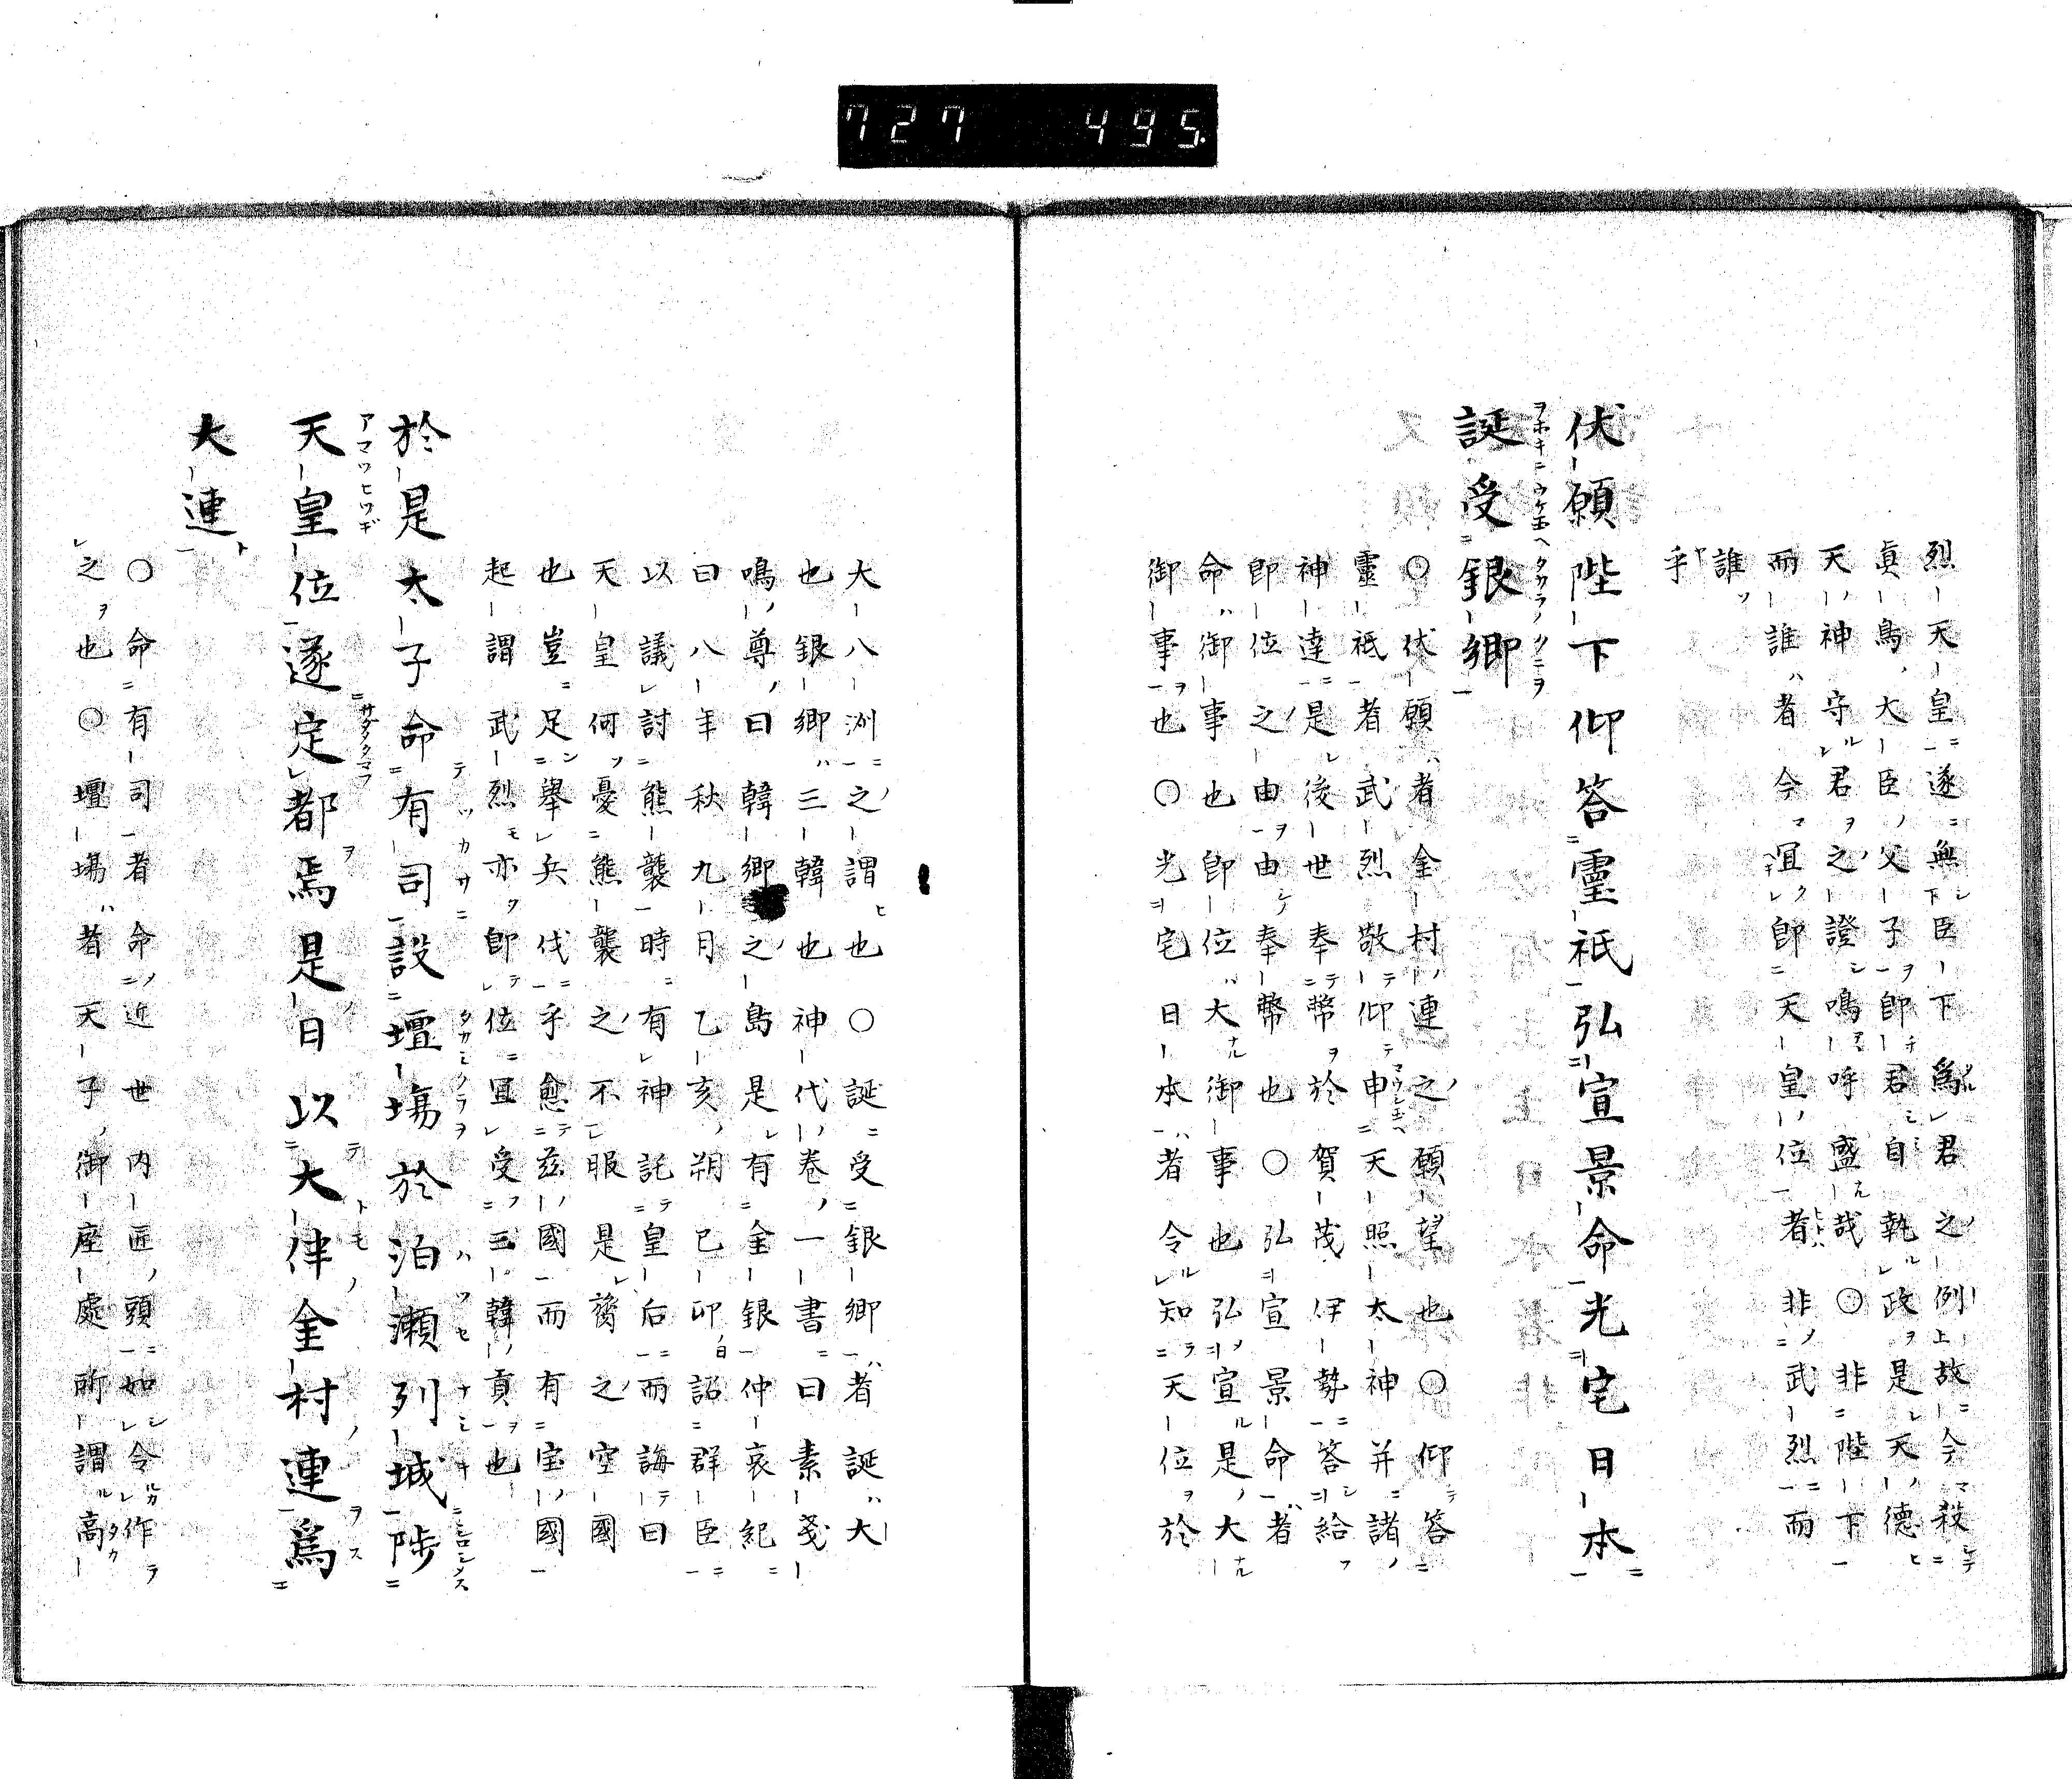 727 495
烈天皇遂無臣下爲君之例故今殺
眞鳥大臣父子即君自執政是天德
天神守君之證鳴呼盛哉○非陛下
而誰者今宜即天皇位者非武烈而
誰
乎
伏願陛下仰答靈祇弘宣景命光宅日本
誕受銀郷
○伏願者金村連之願望也○仰答
靈祇者武烈敬仰申天照太神并諸
神達是後世奉幣於賀茂伊勢答給
即位之由由奉幣也○弘宣景命者
命御事也即位大御事也弘宣是大
御事也○光宅日本者令知天位於
大八洲之謂也○誕受銀郷者誕大
也銀郷三韓也神代卷一書曰素戔
鳴尊曰韓郷之島是有金銀仲哀紀
曰八年秋九月乙亥朔己卯詔群臣
以議討熊襲時有神託皇后而誨曰
天皇何憂熊襲之不服是膂之空國
也豈足舉兵伐乎愈茲國而有宝國
起謂武烈亦即位宜受三韓貢也
於是太子命有司設壇場於泊瀬列城陟
天皇位遂定都焉是日以大伴金村連爲
大連
○命有司者命近世内匠頭如令作
之也○壇場者天子御座處所謂高